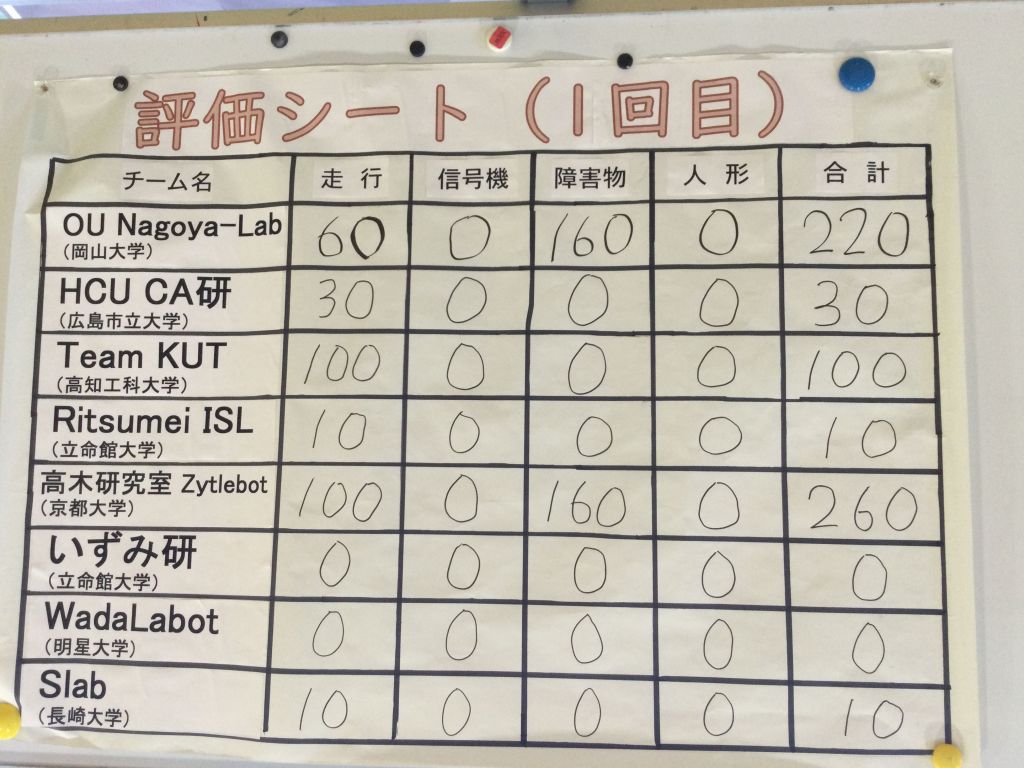 評価シート（1回目）
チーム名 走行 信号機 障害物 人形 合計
OU Nagoya-Lab 60 0 160 0 220
（岡山大学）
HCU CA研 30 0 0 0 30
（広島市立大学）
Team KUT 100 0 0 0 100
（高知工科大学）
Ritsumei ISL 10 0 0 0 10
（立命館大学）
高木研究室 Zytlebot 100 0 160 0 260
（京都大学）
いずみ研 0 0 0 0 0
（立命館大学）
WadaLabot 0 0 0 0 0
（明星大学）
Slab 10 0 0 0 10
（長崎大学）